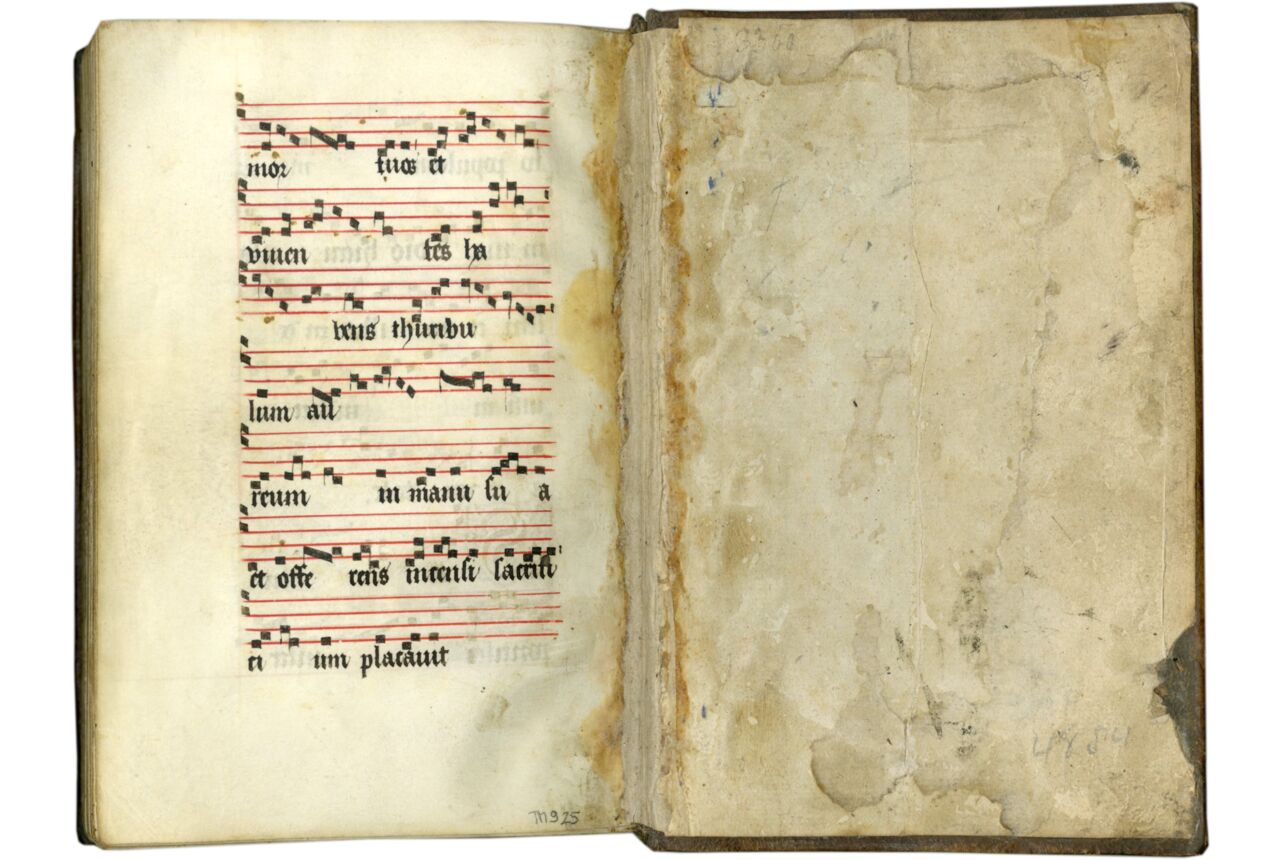 mor tuos et
viuen tes ha
bens thuribu
lum au
reum in manu su a
et offe rens incensi sacrifi
ci um placauit
TM925
3360
4884